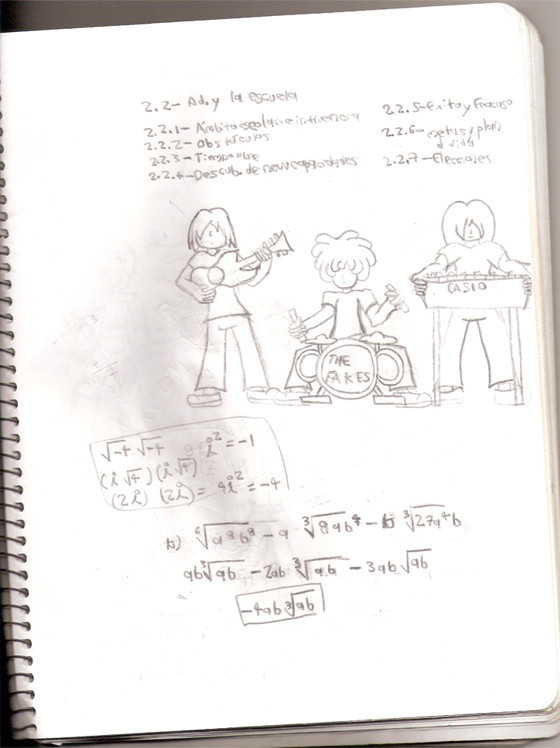 2.2- Ad. y la escuela
2.2.1- Ambito escolar e influencia
2.2.2- Obstáculos
2.2.3- Tiempo libre
2.2.4- Descub. de nevas capacidades
2.2.5- Exito y Fracaso
2.2.6- metas y plan
d vida
2.2.7- Elecciones
CASIO
THE
FAKES
√-4 √-4 i² = -1
(i √4) (i √4)
(2i) (2i) = 4i² = -4
b) ⁶√a⁸b⁸ - a ³√8ab⁴ - b ³√27a⁴b
ab ³√ab - 2ab ³√ab - 3ab √ab
-4ab ³√ab